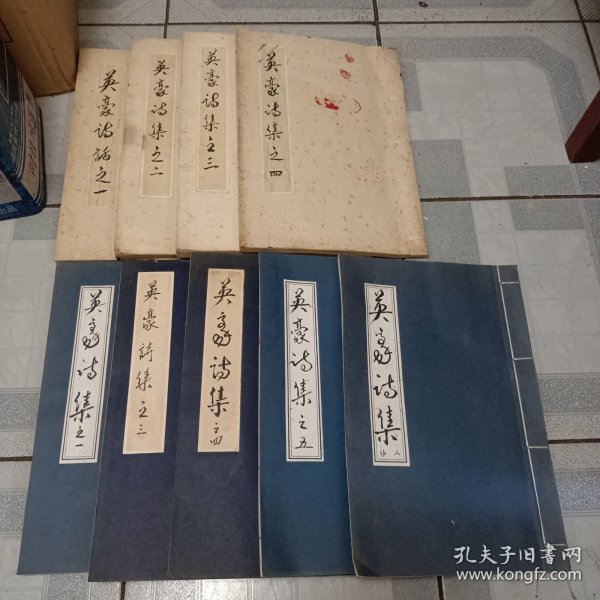 英豪诗话之一
英豪诗集之二
英豪诗集之三
英豪诗集之四
英豪诗集之一
英豪詩集之三
英豪诗集之四
英豪诗集之五
英豪诗集
孔夫子旧书网
www.kongfz.com